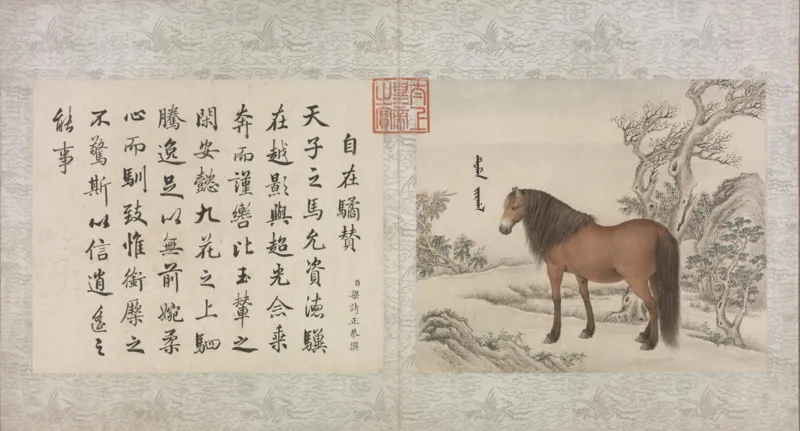 太上皇帝之寶
自在驈贊
臣梁詩正恭撰
天子之馬允資德驥
在越影與超光念乘
奔而謹轡比玉輦之
閑安懿九花之上駟
騰逸足以無前婉柔
心而馴致惟銜橜之
不驚斯以信逍遙之
能事